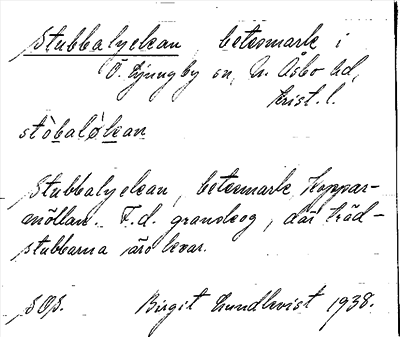 Stubbalyckan, betesmark i
Ö. Ljungby sn, N. Åsbo hd,
Krist. l.
stòbaløkan
Stubbalyckan, betesmark, Koppar-
möllan. F.d. granskog, där träd-
stubbarna äro kvar.
SOS. Birgit Lundkvist 1938.